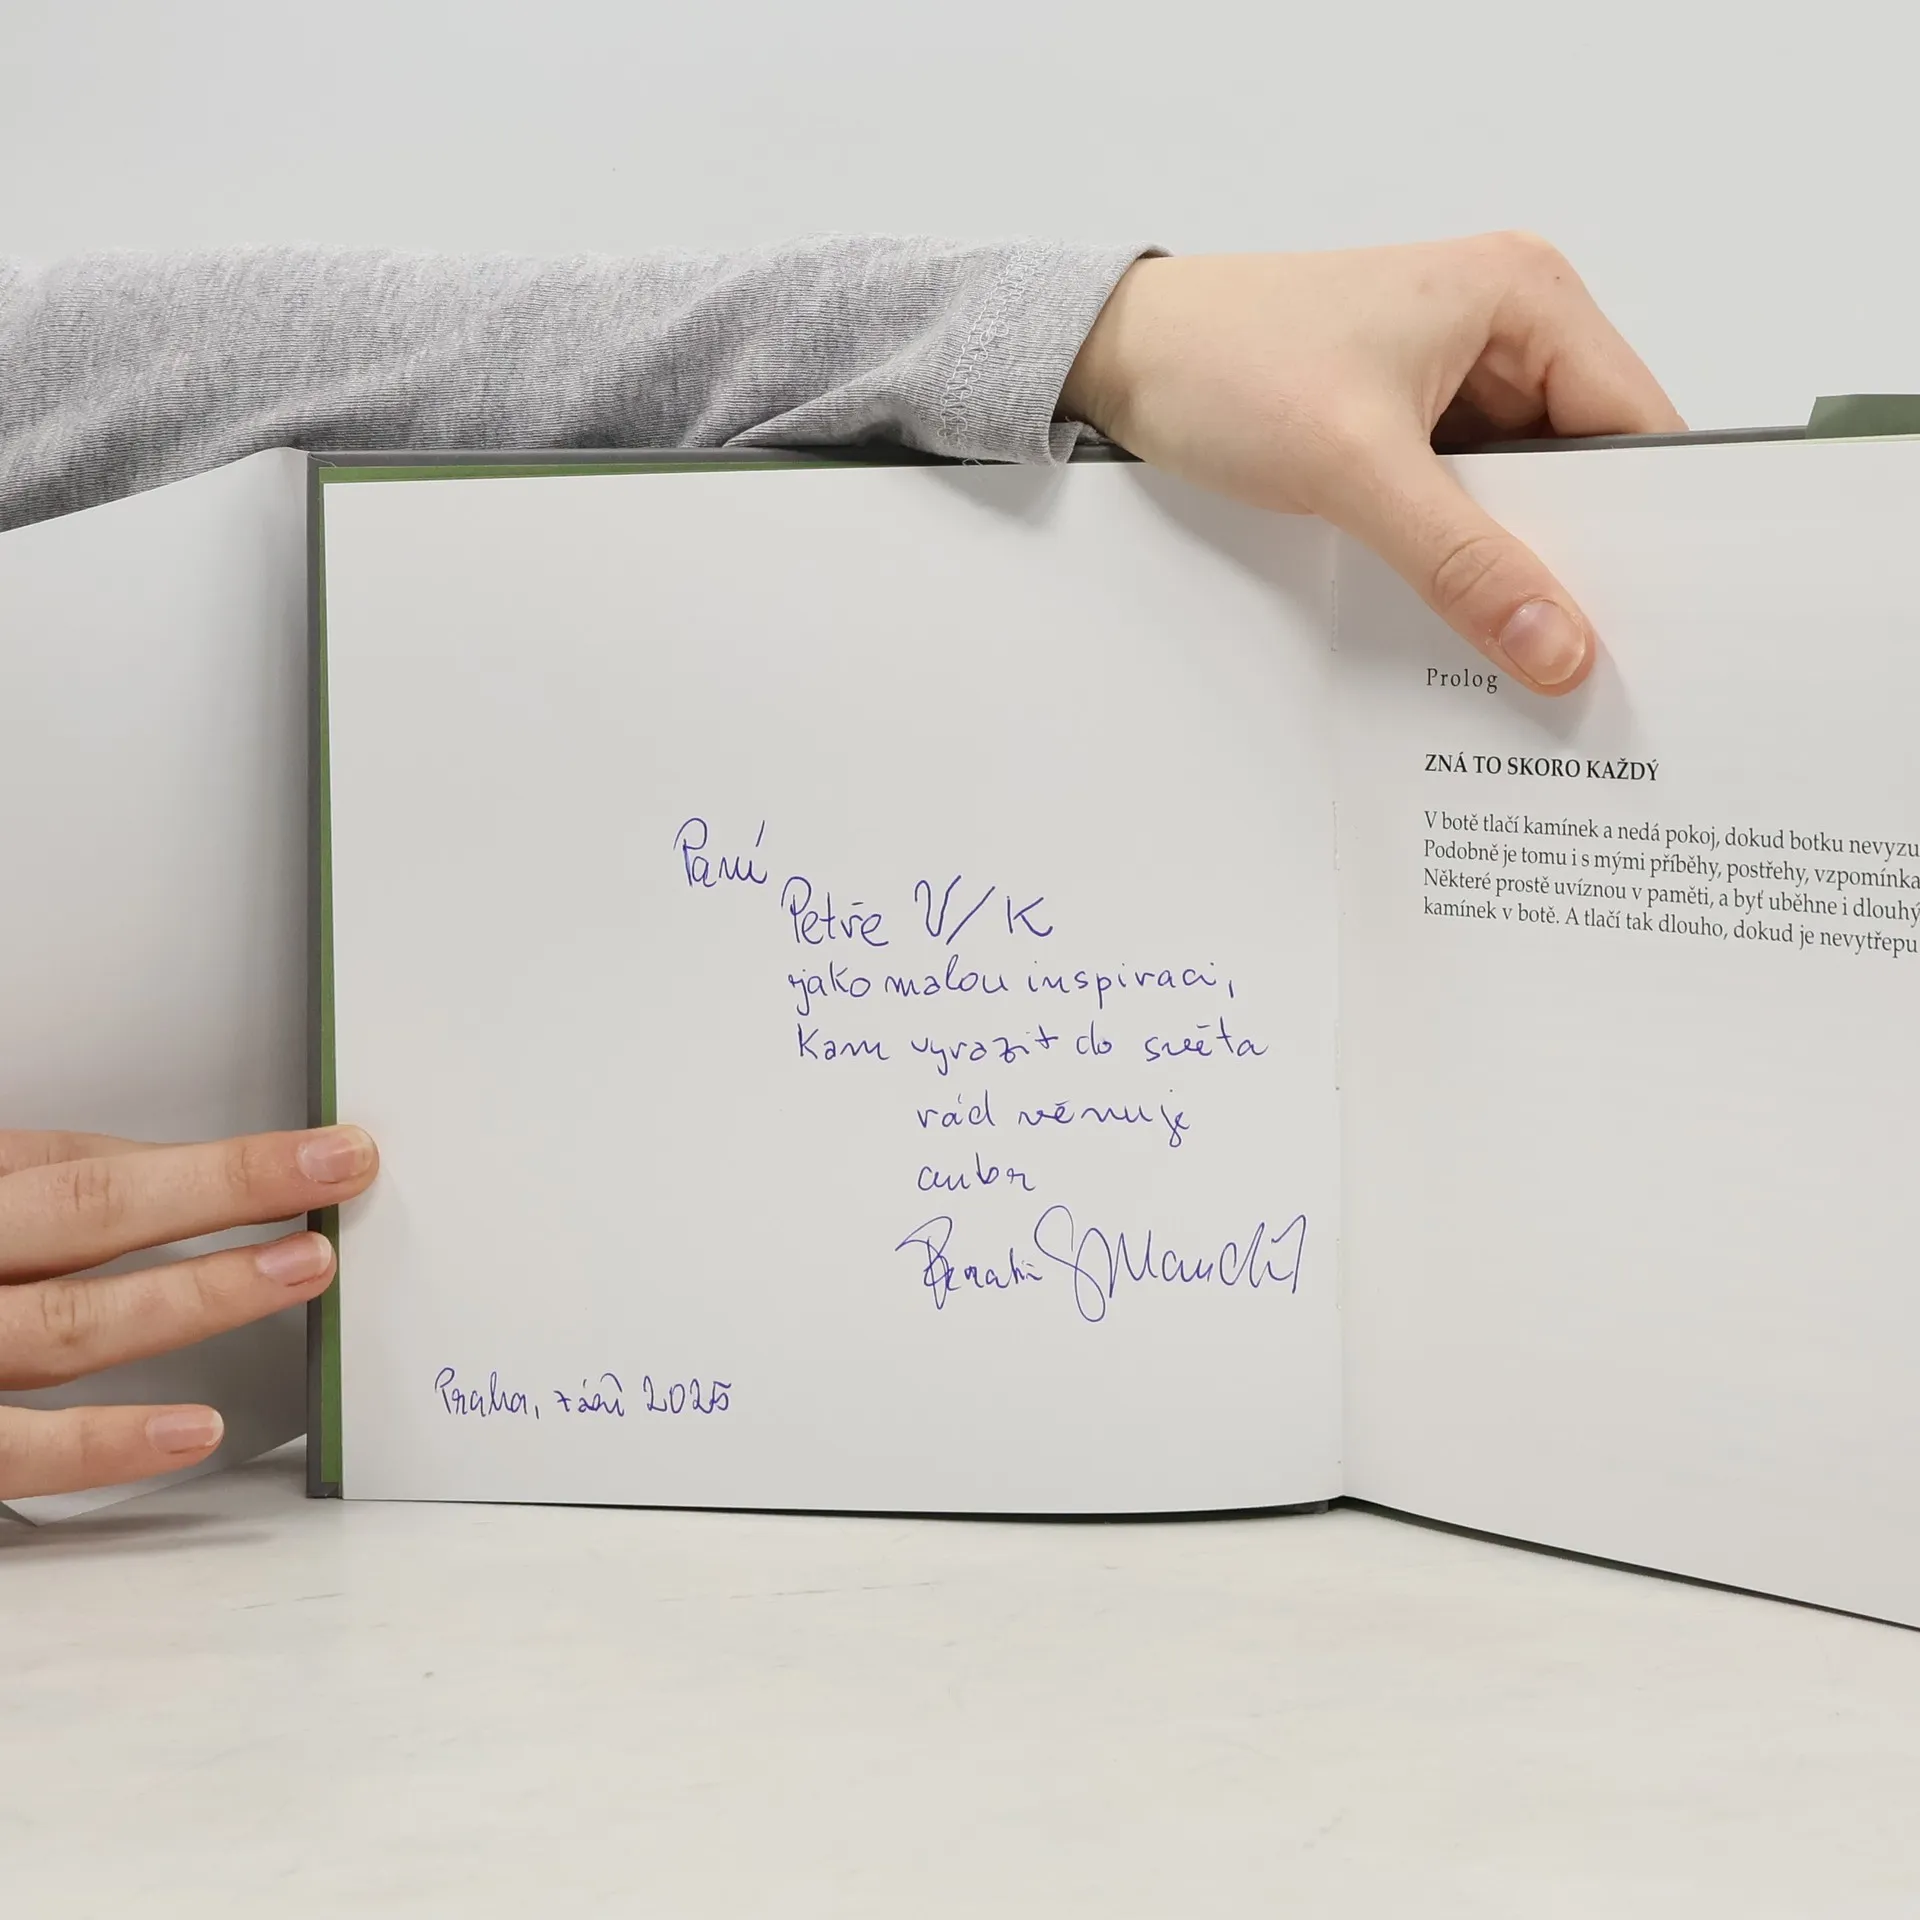 Paní
Petře V/K
jako malou inspiraci,
kam vyrazit do světa
rád věnuje
autor
Praha, září 2025
Prolog
ZNÁ TO SKORO KAŽDÝ
V botě tlačí kamínek a nedá pokoj, dokud botku nevyzu
Podobně je tomu i s mými příběhy, postřehy, vzpomínka
Některé prostě uvíznou v paměti, a byť uběhne i dlouhý
kamínek v botě. A tlačí tak dlouho, dokud je nevytřepu